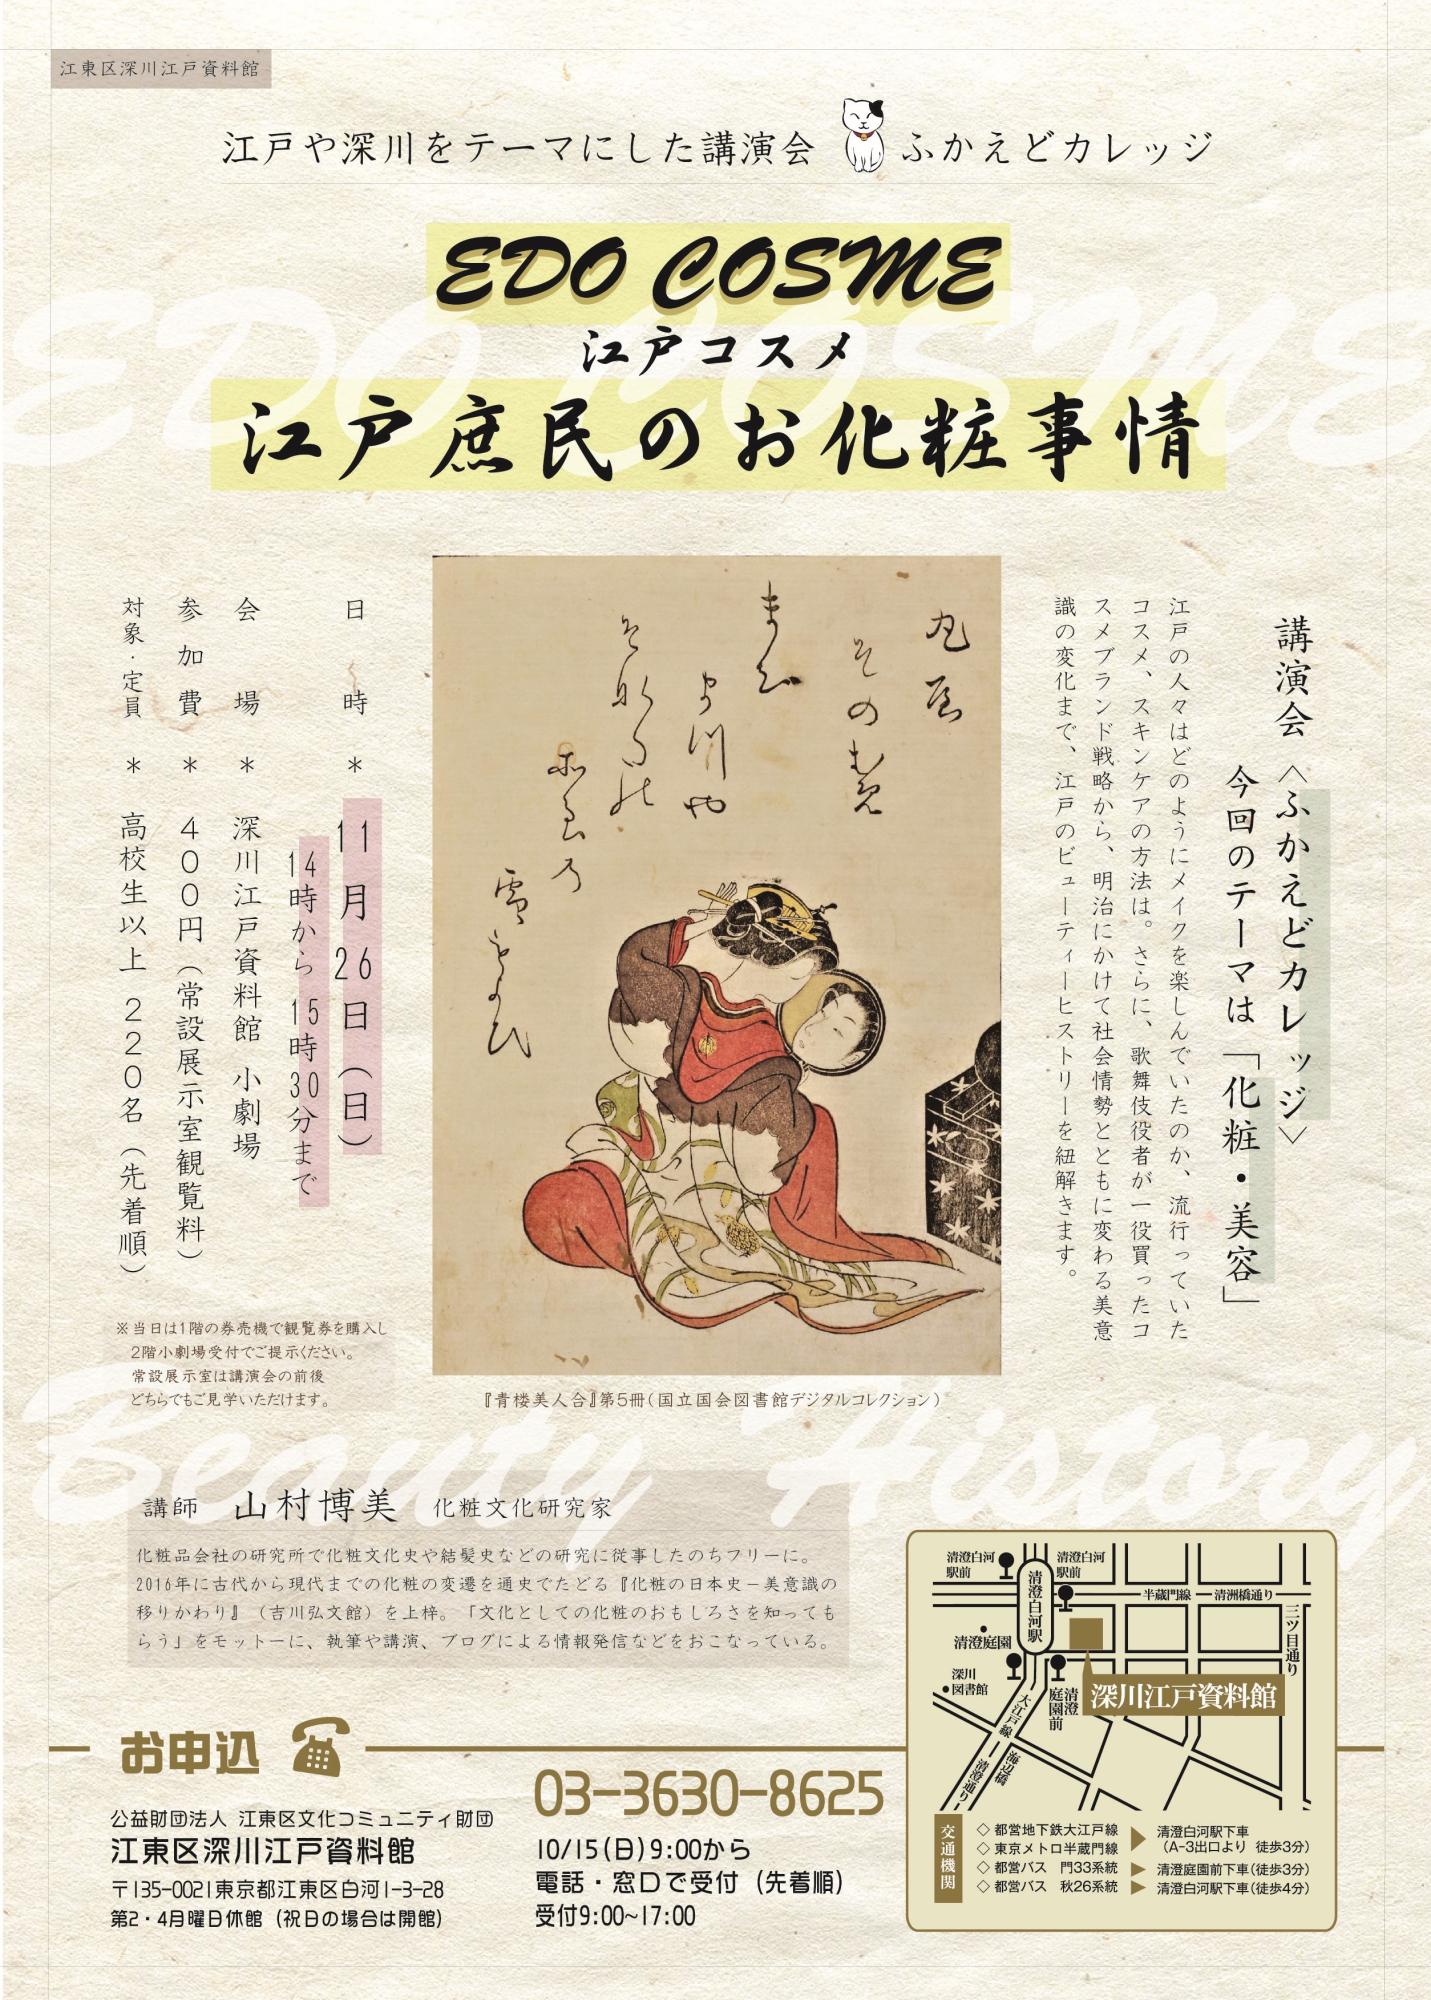 江東区深川江戸資料館
江戸や深川をテーマにした講演会 ふかえどカレッジ
EDO COSME
江戸コスメ
江戸庶民のお化粧事情
EDO COSME
講演会〈ふかえどカレッジ〉
今回のテーマは「化粧・美容」
江戸の人々はどのようにメイクを楽しんでいたのか、流行っていた
コスメ、スキンケアの方法は。さらに、歌舞伎役者が一役買ったコ
スメブランド戦略から、明治にかけて社会情勢とともに変わる美意
識の変化まで、江戸のビューティーヒストリーを紐解きます。
日時＊11月26日（日）
14時から15時30分まで
会場＊深川江戸資料館 小劇場
参加費＊400円（常設展示室観覧料）
対象・定員＊高校生以上 220名（先着順）
※当日は1階の券売機で観覧券を購入し
2階小劇場受付でご提示ください。
常設展示室は講演会の前後
どちらでもご見学いただけます。
『青楼美人合』第5冊（国立国会図書館デジタルコレクション）
Beauty History
講師 山村博美 化粧文化研究家
化粧品会社の研究所で化粧文化史や結髪史などの研究に従事したのちフリーに。
2016年に古代から現代までの化粧の変遷を通史でたどる『化粧の日本史－美意識の
移りかわり』（吉川弘文館）を上梓。「文化としての化粧のおもしろさを知っても
らう」をモットーに、執筆や講演、ブログによる情報発信などをおこなっている。
お申込
公益財団法人 江東区文化コミュニティ財団
江東区深川江戸資料館
〒135-0021東京都江東区白河1-3-28
第2・4月曜日休館（祝日の場合は開館）
03-3630-8625
10/15(日)9:00から
電話・窓口で受付（先着順）
受付9:00~17:00
清澄白河
駅前
清澄白河
駅前
清澄白河駅
半蔵門線
清洲橋通り
三ツ目通り
清澄庭園
深川
図書館
清澄
庭園前
深川江戸資料館
大江戸線
海辺橋
清澄通り
交通機関
◇都営地下鉄大江戸線
◇東京メトロ半蔵門線
清澄白河駅下車
（A-3出口より 徒歩3分）
◇都営バス 門33系統 清澄庭園前下車（徒歩3分）
◇都営バス 秋26系統 清澄白河駅下車（徒歩4分）